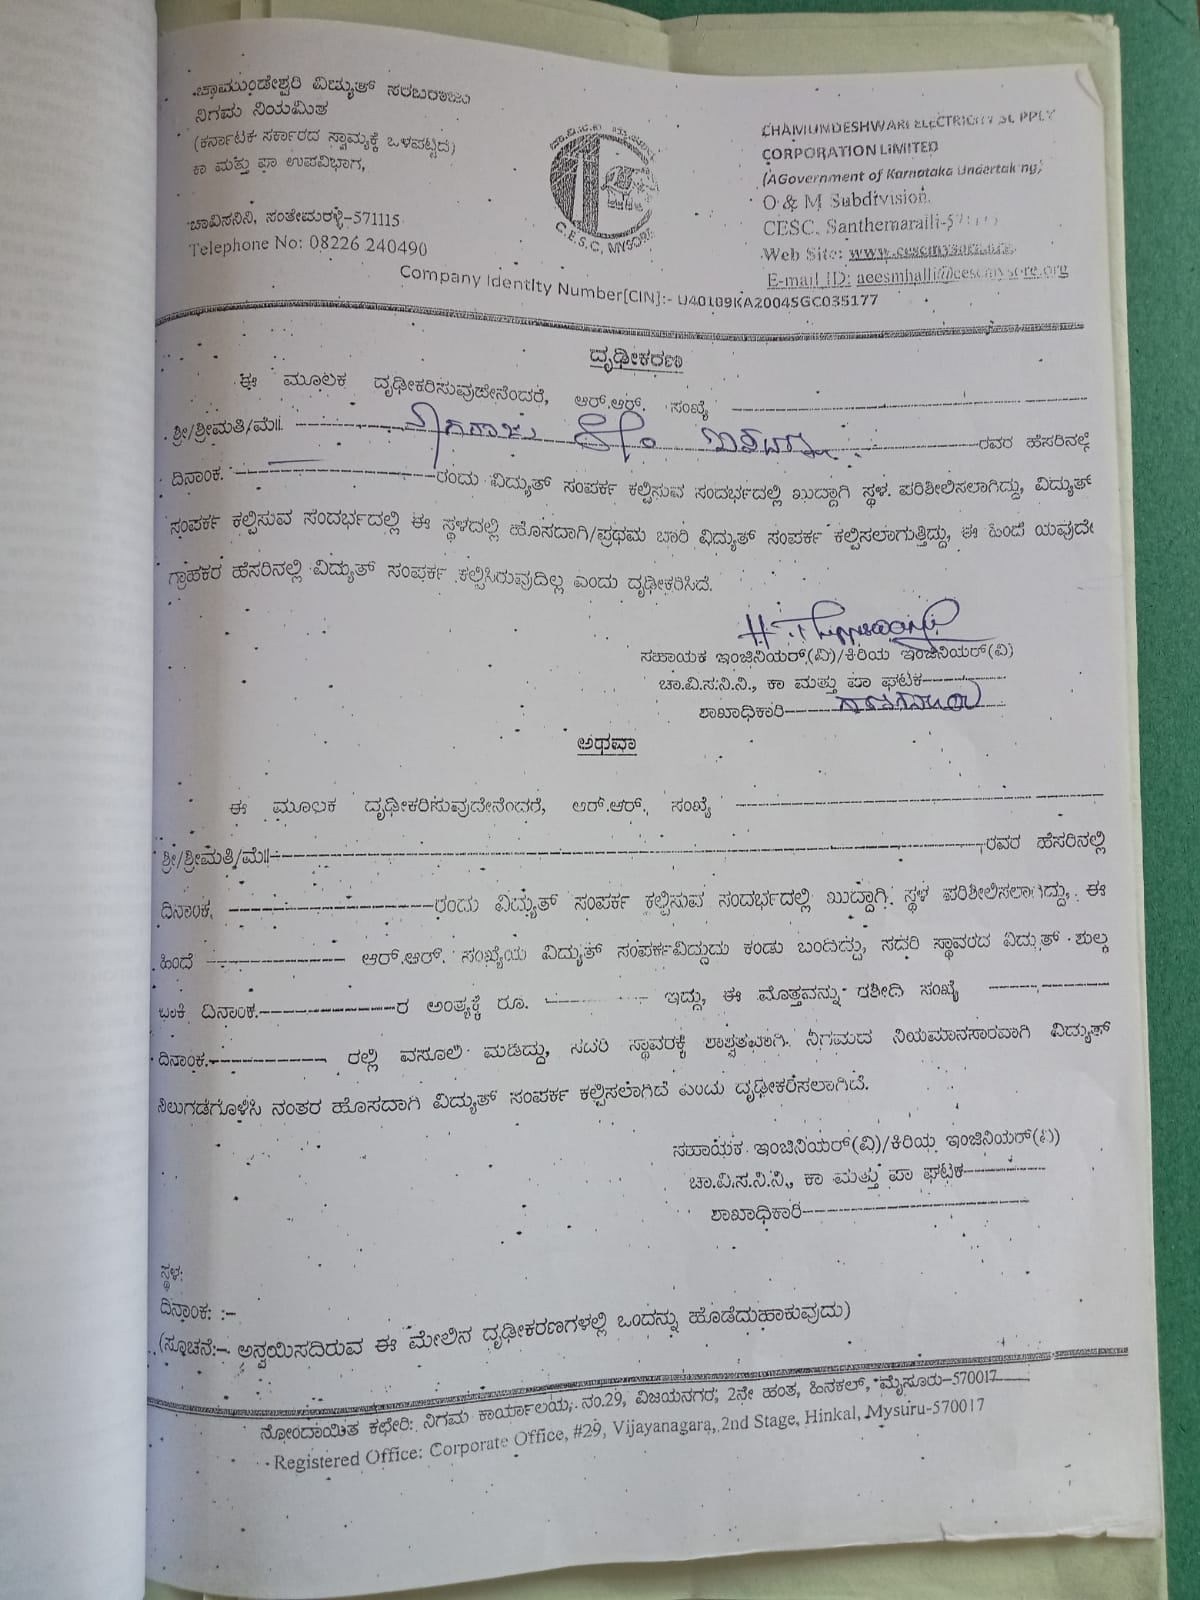 ಚಾಮುಂಡೇಶ್ವರಿ ವಿದ್ಯುತ್ ಸರಬರಾಜು
ನಿಗಮ ನಿಯಮಿತ
(ಕರ್ನಾಟಕ ಸರ್ಕಾರದ ಸ್ವಾಮ್ಯಕ್ಕೆ ಒಳಪಟ್ಟಿದೆ)
ಕಾ ಮತ್ತು ಪಾ ಉಪವಿಭಾಗ,
ಚಾವಿಸನಿನಿ, ಸಂತೇಮರಳ್ಳಿ-571115
Telephone No: 08226 240490
C.E.S.C, MYSORE
CHAMUNDESHWARI ELECTRICITY SUPPLY
CORPORATION LIMITED
(AGovernment of Karnataka Undertaking)
O & M Subdivision.
CESC, Santhemaralli-571115
Web Site: www.cescmysore.org
E-mail ID: aeesmhalli@cescmysore.org
Company Identity Number[CIN]:- U40109KA2004SGC035177
ದೃಢೀಕರಣ
ಈ ಮೂಲಕ ದೃಢೀಕರಿಸುವುದೇನೆಂದರೆ, ಆರ್.ಆರ್. ಸಂಖ್ಯೆ
ಶ್ರೀ/ಶ್ರೀಮತಿ/ಮೆ॥. ರವರ ಹೆಸರಿನಲ್ಲಿ
ದಿನಾಂಕ. ರಂದು ವಿದ್ಯುತ್ ಸಂಪರ್ಕ ಕಲ್ಪಿಸುವ ಸಂದರ್ಭದಲ್ಲಿ ಖುದ್ದಾಗಿ ಸ್ಥಳ. ಪರಿಶೀಲಿಸಲಾಗಿದ್ದು, ವಿದ್ಯುತ್
ಸಂಪರ್ಕ ಕಲ್ಪಿಸುವ ಸಂದರ್ಭದಲ್ಲಿ ಈ ಸ್ಥಳದಲ್ಲಿ ಹೊಸದಾಗಿ/ಪ್ರಥಮ ಬಾರಿ ವಿದ್ಯುತ್ ಸಂಪರ್ಕ ಕಲ್ಪಿಸಲಾಗುತ್ತಿದ್ದು, ಈ ಹಿಂದೆ ಯವುದೇ
ಗ್ರಾಹಕರ ಹೆಸರಿನಲ್ಲಿ ವಿದ್ಯುತ್ ಸಂಪರ್ಕ ಕಲ್ಪಿಸಿರುವುದಿಲ್ಲ ಎಂದು ದೃಢೀಕರಿಸಿದೆ.
ಸಹಾಯಕ ಇಂಜಿನಿಯರ್(ವಿ)/ಕಿರಿಯ ಇಂಜಿನಿಯರ್(ವಿ)
ಚಾ.ವಿ.ಸ.ನಿ.ನಿ., ಕಾ ಮತ್ತು ಪಾ ಘಟಕ
ಶಾಖಾಧಿಕಾರಿ
ಅಥವಾ
ಈ ಮೂಲಕ ದೃಢೀಕರಿಸುವುದೇನೆಂದರೆ, ಆರ್.ಆರ್. ಸಂಖ್ಯೆ
ಶ್ರೀ/ಶ್ರೀಮತಿ/ಮೆ॥ ರವರ ಹೆಸರಿನಲ್ಲಿ
ದಿನಾಂಕ, ರಂದು ವಿದ್ಯುತ್ ಸಂಪರ್ಕ ಕಲ್ಪಿಸುವ ಸಂದರ್ಭದಲ್ಲಿ ಖುದ್ದಾಗಿ. ಸ್ಥಳ ಪರಿಶೀಲಿಸಲಾಗಿದ್ದು, ಈ
ಹಿಂದೆ ಆರ್.ಆರ್. ಸಂಖ್ಯೆಯ ವಿದ್ಯುತ್ ಸಂಪರ್ಕವಿದ್ದುದು ಕಂಡು ಬಂದಿದ್ದು, ಸದರಿ ಸ್ಥಾವರದ ವಿದ್ಯುತ್ ಶುಲ್ಕ
ಬಾಕಿ ದಿನಾಂಕ. ರ ಅಂತ್ಯಕ್ಕೆ ರೂ. ಇದ್ದು, ಈ ಮೊತ್ತವನ್ನು ರಶೀದಿ ಸಂಖ್ಯೆ
ದಿನಾಂಕ. ರಲ್ಲಿ ವಸೂಲಿ ಮಡಿದ್ದು, ಸದರಿ ಸ್ಥಾವರಕ್ಕೆ ಶಾಶ್ವತವಾಗಿ. ನಿಗಮದ ನಿಯಮಾನಸಾರವಾಗಿ ವಿದ್ಯುತ್
ನಿಲುಗಡೆಗೊಳಿಸಿ ನಂತರ ಹೊಸದಾಗಿ ವಿದ್ಯುತ್ ಸಂಪರ್ಕ ಕಲ್ಪಿಸಲಾಗಿದೆ ಎಂದು ದೃಢೀಕರಿಸಲಾಗಿದೆ.
ಸಹಾಯಕ ಇಂಜಿನಿಯರ್(ವಿ)/ಕಿರಿಯ ಇಂಜಿನಿಯರ್(ವಿ)
ಚಾ.ವಿ.ಸ.ನಿ.ನಿ., ಕಾ ಮತ್ತು ಪಾ ಘಟಕ
ಶಾಖಾಧಿಕಾರಿ
ಸ್ಥಳ:
ದಿನಾಂಕ: :-
(ಸೂಚನೆ:- ಅನ್ವಯಿಸದಿರುವ ಈ ಮೇಲಿನ ದೃಢೀಕರಣಗಳಲ್ಲಿ ಒಂದನ್ನು ಹೊಡೆದುಹಾಕುವುದು)
ನೋಂದಾಯಿತ ಕಛೇರಿ: ನಿಗಮ ಕಾರ್ಯಾಲಯ, ನಂ.29, ವಿಜಯನಗರ, 2ನೇ ಹಂತ, ಹಿನಕಲ್, ಮೈಸೂರು-570017
Registered Office: Corporate Office, #29, Vijayanagara, 2nd Stage, Hinkal, Mysuru-570017